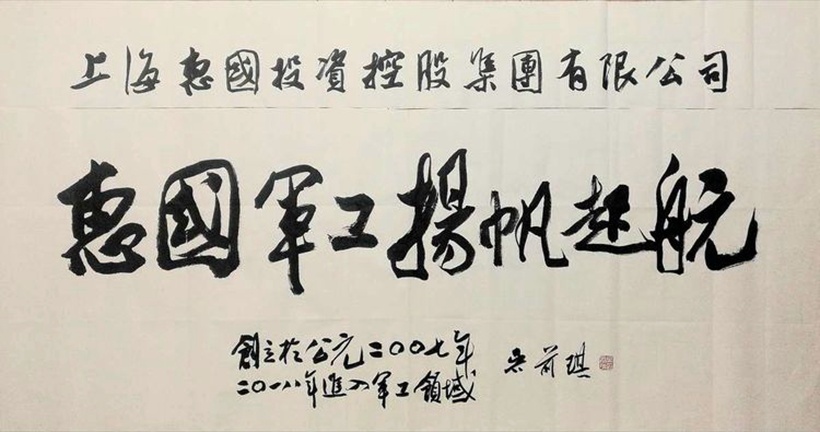 上海惠國投資控股集團有限公司
惠國軍工揚帆起航
創立於公元二〇〇七年
二〇一八年進入軍工領域